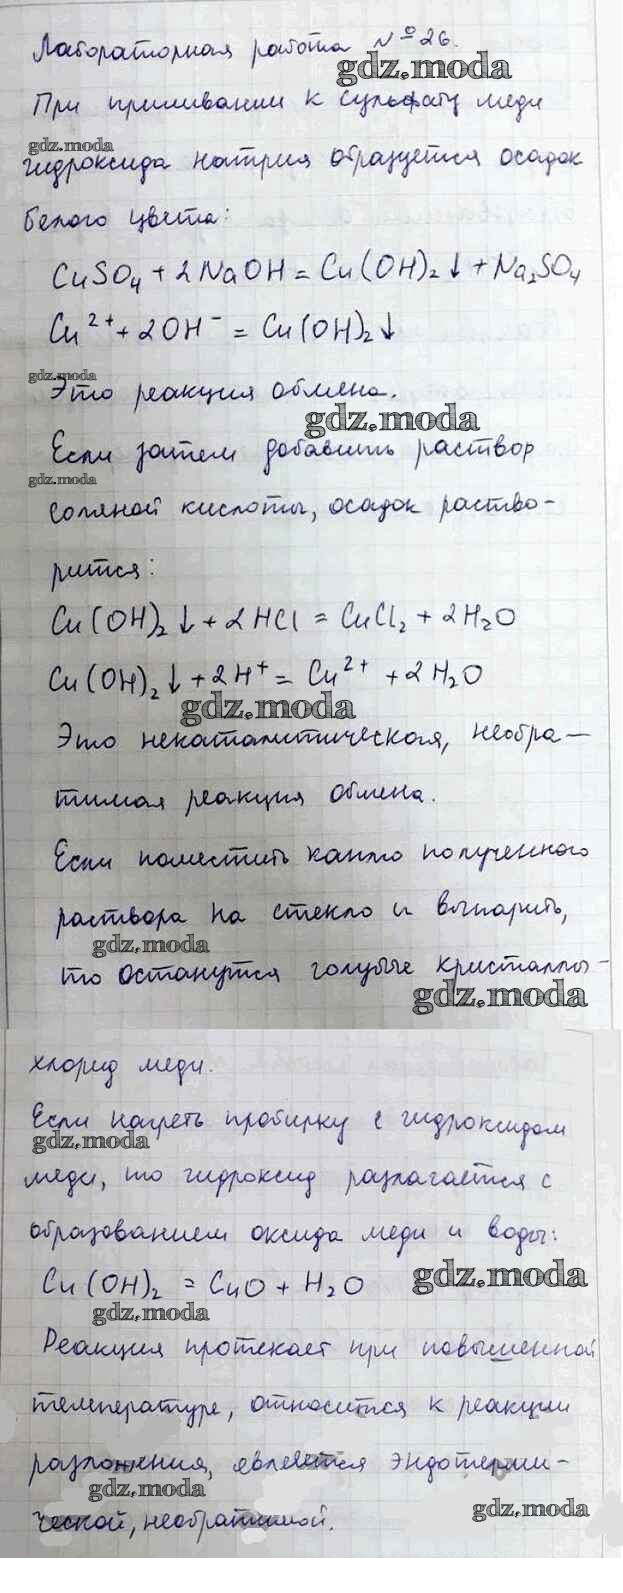 Лабораторная работа № 26.
gdz.moda
При приливании к сульфату меди
gdz.moda
гидроксида натрия образуется осадок
белого цвета:
CuSO₄ + 2NaOH = Cu(OH)₂↓ + Na₂SO₄
Cu²⁺ + 2OH⁻ = Cu(OH)₂↓
gdz.moda
Это реакция обмена.
gdz.moda
Если затем добавить раствор
gdz.moda
соляной кислоты, осадок раство-
рится:
Cu(OH)₂↓ + 2HCl = CuCl₂ + 2H₂O
Cu(OH)₂↓ + 2H⁺ = Cu²⁺ + 2H₂O
gdz.moda
Это некаталитическая, необра-
тимая реакция обмена.
Если поместить каплю полученного
раствора на стекло и выпарить,
gdz.moda
то останутся голубые кристаллы -
gdz.moda
хлорид меди.
Если нагреть пробирку с гидроксидом
gdz.moda
меди, то гидроксид разлагается с
образованием оксида меди и воды:
Cu(OH)₂ = CuO + H₂O
gdz.moda
gdz.moda
Реакция протекает при повышенной
температуре, относится к реакции
разложения, является эндотерми-
gdz.moda
ческой, необратимой.
gdz.moda